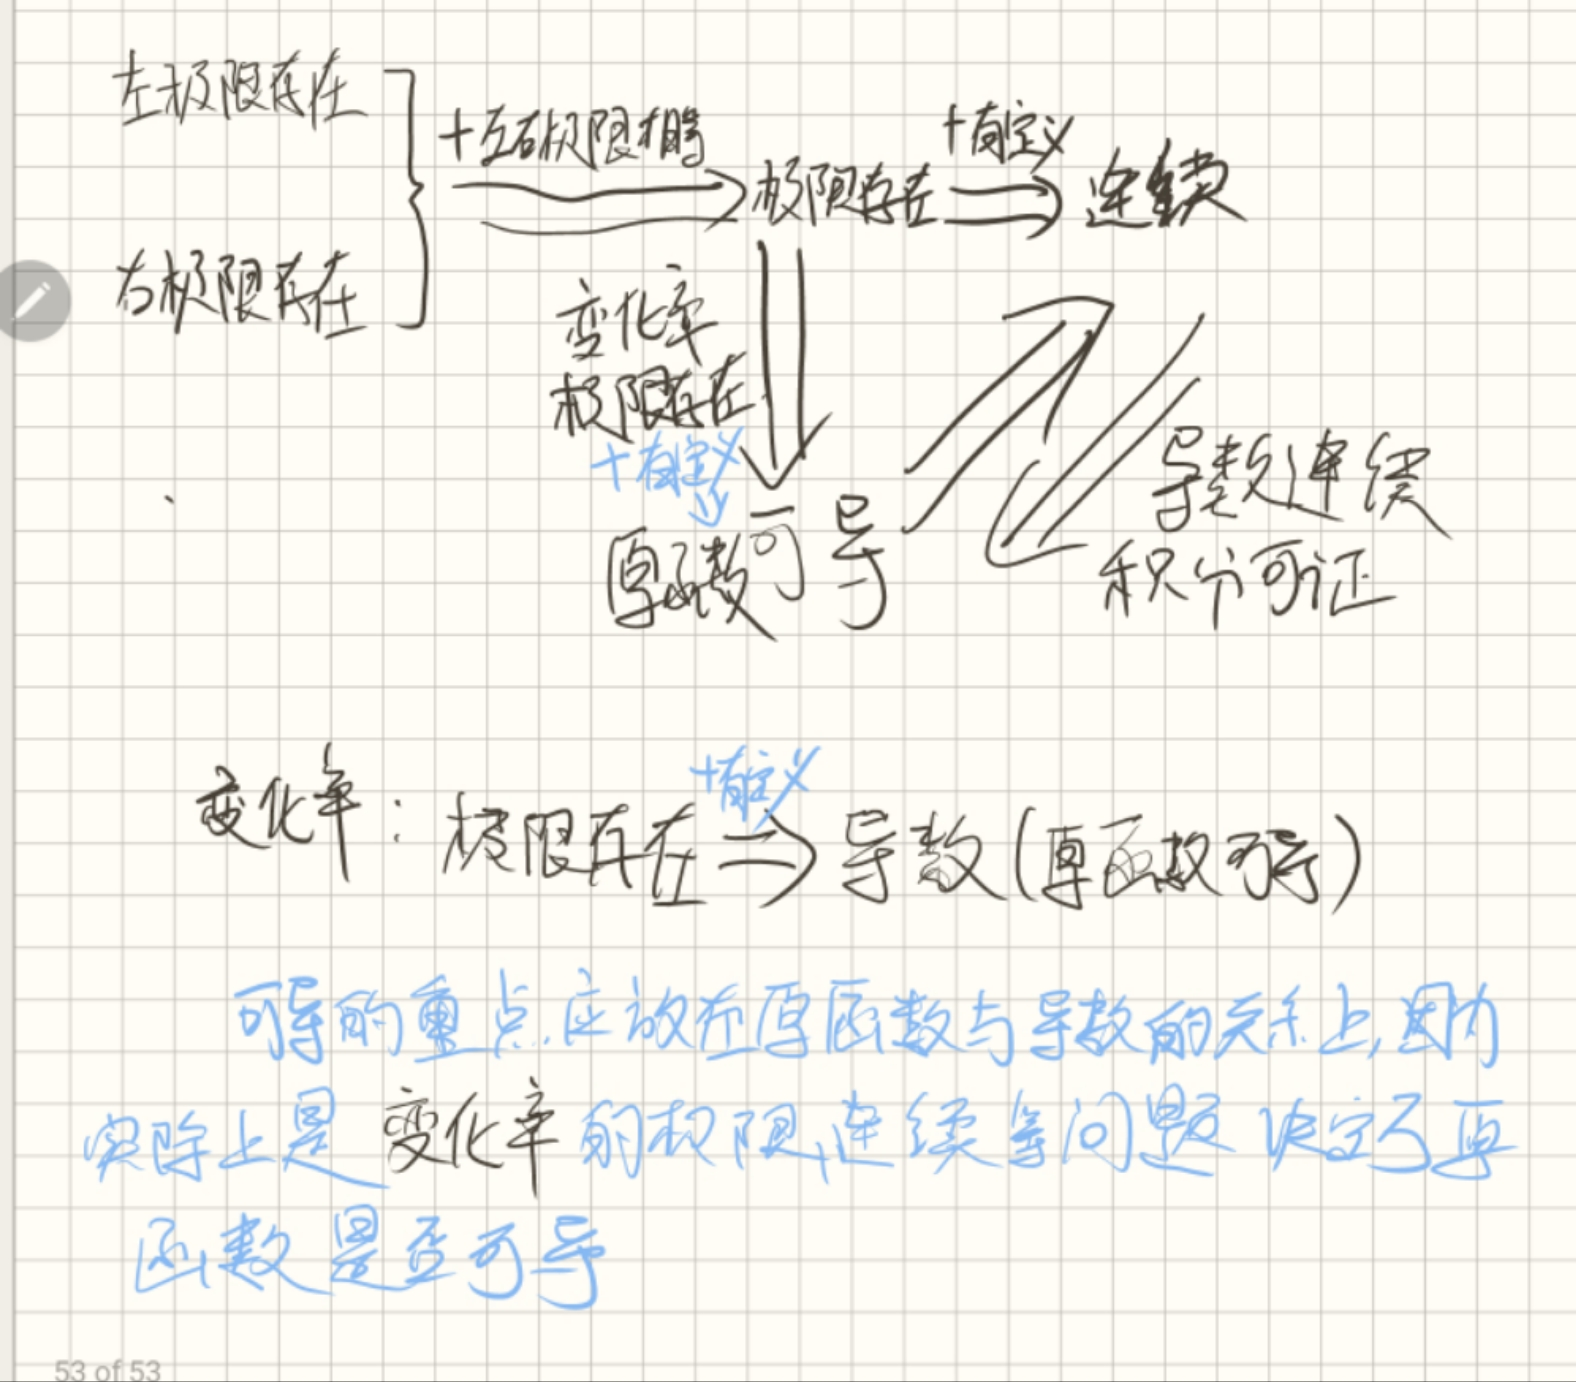 左极限存在
+左右极限相等
+有定义
极限存在
连续
右极限存在
变化率
极限存在
+有定义
原函数可导
导数连续
积分可证
+有定义
变化率：极限存在⇒导数(原函数可导)
可导的重点应放在原函数与导数的关系上,因为
实际上是变化率的极限,连续等问题决定了原
函数是否可导
53 of 53